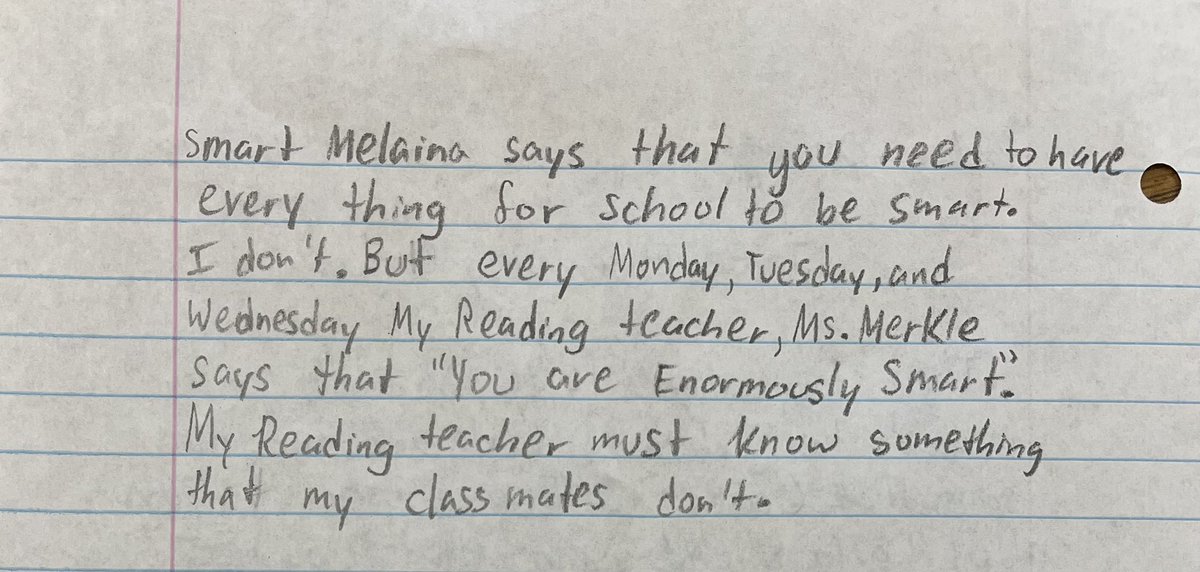 Smart Melaina says that you need to have
every thing for school to be smart.
I don't. But every Monday, Tuesday, and
Wednesday My Reading teacher, Ms. Merkle
says that "You are Enormously Smart."
My Reading teacher must know something
that my class mates don't.